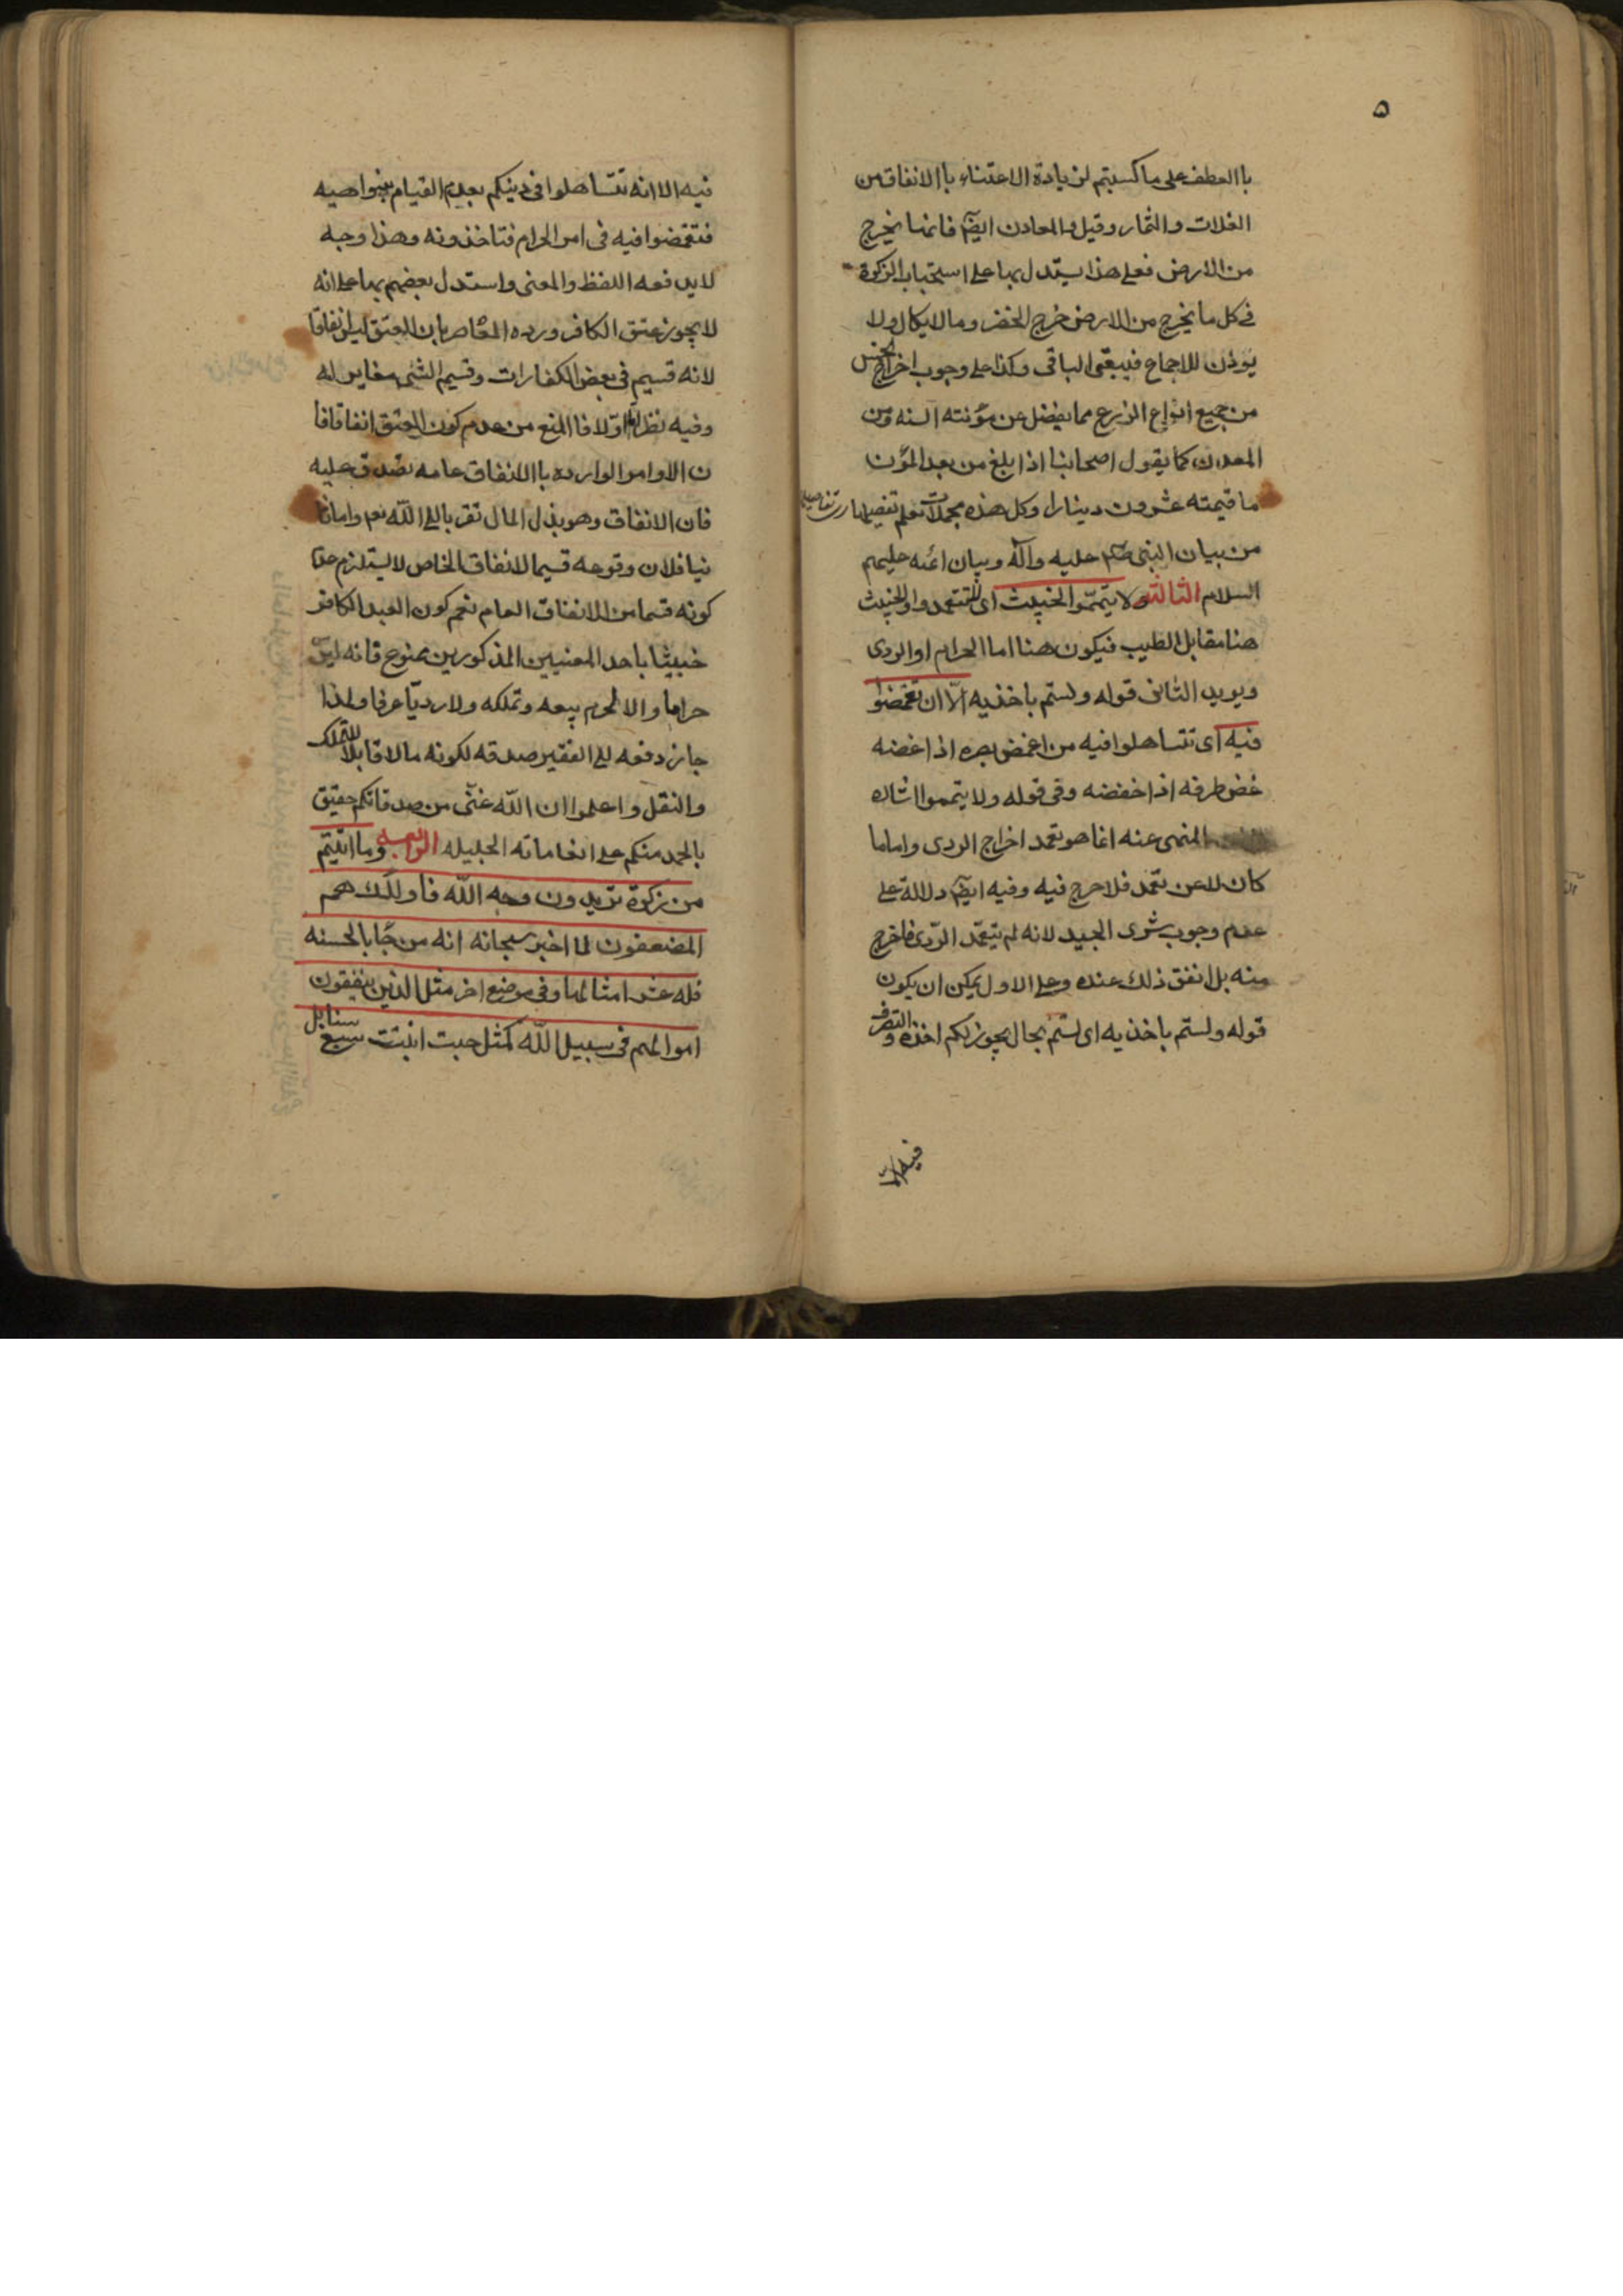 ٥
باالعطف على ما كسبتم لزيادة الاعتناء باالانفاق من
الغلات والثمار وقيل والمعادن ايضا فانما يخرج
من الارض فعلى هذا يستدل بها على استحباب الزكوة
فى كل ما يخرج من الارض خرج الخضر وما لا يكال ولا
يوذن للاجماع فيبقى الباقى وكذا على وجوب اخراج الخمس
من جميع انواع الزرع مما يفضل عن مؤنته السنه ومن
المعدن كما يقول اصحابنا اذا بلغ من بعد المؤن
ما قيمته عشرون دينارا وكل هذه مجملات تعلم تفصيلها
من بيان النبى صلم عليه وآله وبيان ائمه عليهم
السلام الثالثه ولا يتمموا الخبيث اى لا تتعمدوا والخبيث
هنا مقابل الطيب فيكون هنا اما الحرام او الردى
ويويد الثانى قوله ولستم باخذيه الّا ان تغمضوا
فيه اى تتساهلوا فيه من اغمض بصره اذا غضه
غض طرفه اذا خفضه وفى قوله ولا يتمموا اشاره
المنهى عنه انما هو تعمد اخراج الردى واما ما
كان لا عن تعمد فلا حرج فيه وفيه ايضا دلالة على
عدم وجوب شرى الجيد لانه لم يتعمّد الردّى فاخرج
منه بل انفق ذلك عنده وعلى الاول يمكن ان يكون
قوله ولستم باخذيه اى لستم بحال يجوز لكم اخذه والتصرف
فيه الّا
فيه الا انه تتساهلوا فى دينكم بعدم القيام بنواهيه
فتغمضوا فيه فى امر الحرام فتاخذونه وهذا وجه
لا يدفعه اللفظ والمعنى واستدل بعضهم بها على انه
لا يجوز عتق الكافر ورده المعاصر بان العتق ليس انفاقا
لانه قسيم فى بعض الكفارات وقسيم الشئ مغاير له
وفيه نظر اما اوّلا فا المنع من عدم كون العتق انفاقا فا
ن الاوامر الوارده باالانفاق عامه تصدق عليه
فان الانفاق وهو بذل المال تقربا الى اللّه نعم واما ثا
نيا فلان وقوعه قسيما لانفاق الخاص لا يستلزم عدم
كونه قسما من الانفاق العام نعم كون العبد الكافر
خبيثا باحد المعنيين المذكورين ممنوع فانه ليس
حراما والا لحرم بيعه وتملكه ولا رديّا عرفا ولذا
جاز دفعه الى الفقير صدقه لكونه مالا قابلا للتملك
والنقل واعلموا ان اللّه غنّى من صدقاتكم حقيق
بالحمد منكم على انعاماته الجليله الرابعه وما اتيتم
من زكوة تريدون وجه اللّه فاولٰئك هم
المضعفون لما اخبر سبحانه انه من جّا بالحسنه
فله عشر امثالها وفى موضع اخر مثل الذين ينفقون
اموالهم فى سبيل اللّه كمثل حبت انبتت سبع سنابل